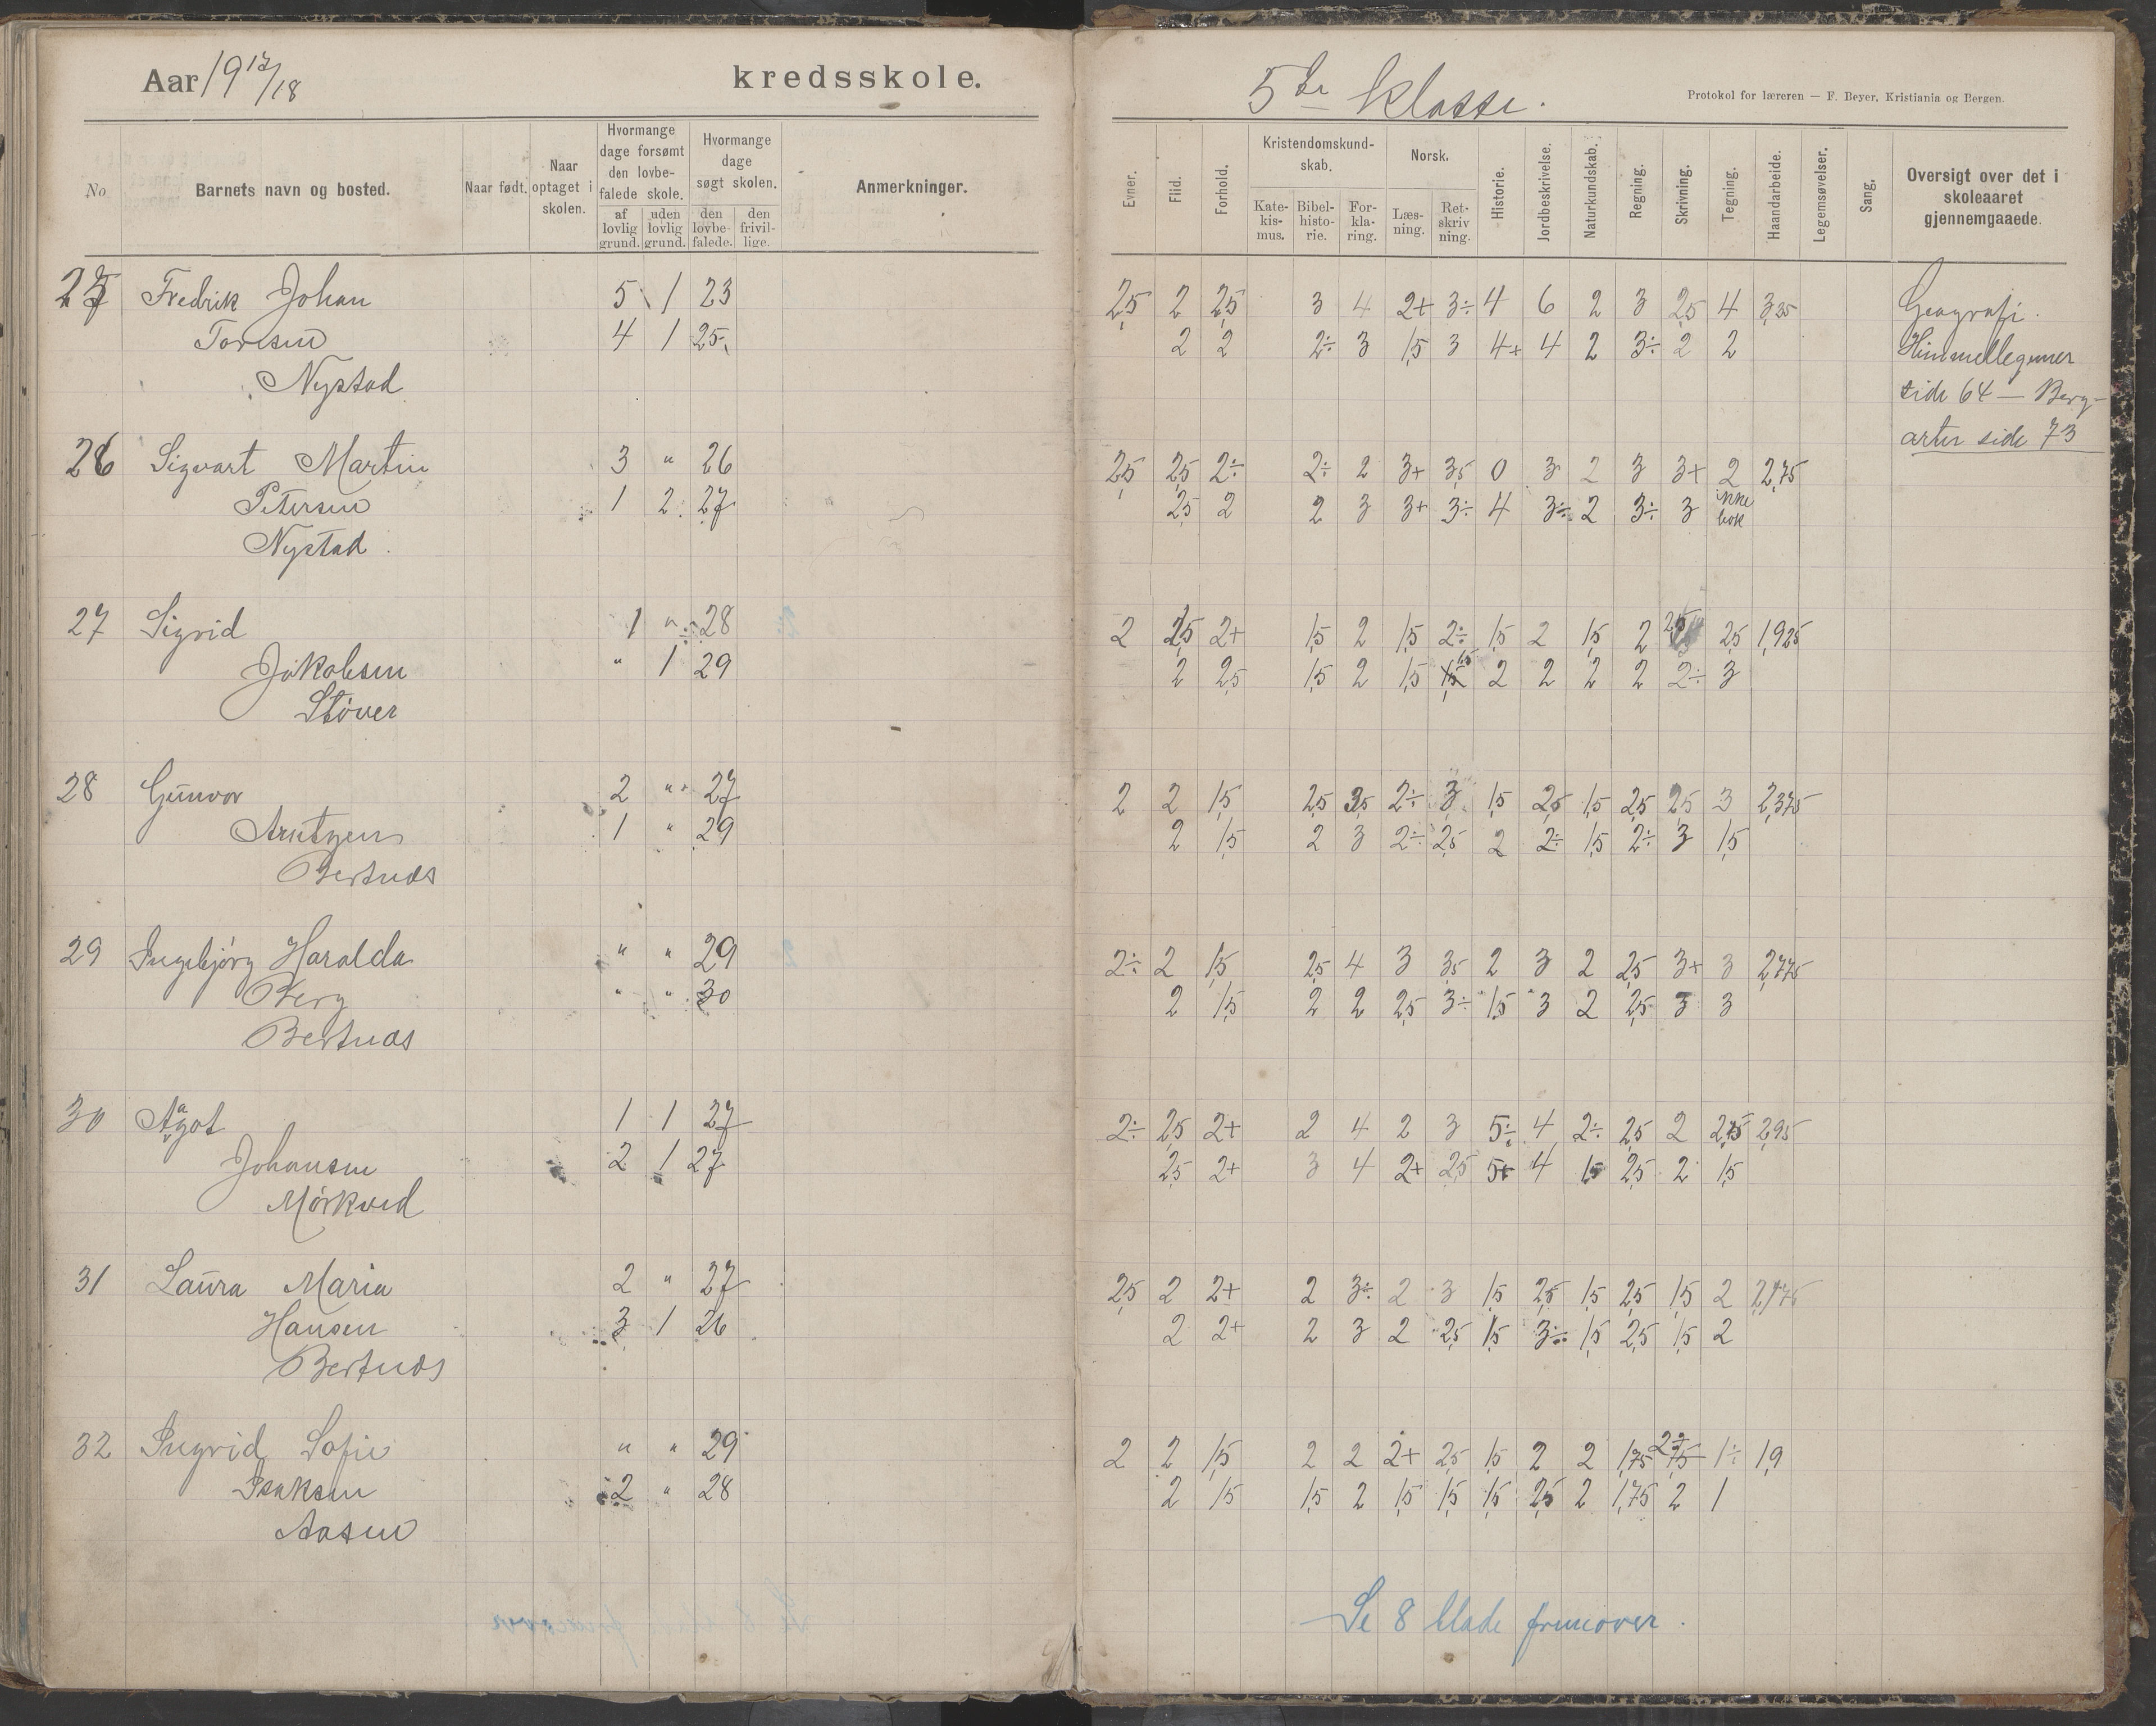 Aar 19 17/18 kredsskole.
5te klasse.
Protokol for læreren — F. Beyer, Kristiania og Bergen.
No
Barnets navn og bosted.
Naar født.
Naar optaget i skolen.
Hvormange dage forsømt den lovbefalede skole.
af lovlig grund.
uden lovlig grund.
Hvormange dage søgt skolen.
den lovbefalede.
den frivillige.
Anmerkninger.
Evner.
Flid.
Forhold.
Kristendomskundskab.
Katekismus.
Bibelhistorie.
Forklaring.
Norsk.
Læsning.
Retskrivning.
Historie.
Jordbeskrivelse.
Naturkundskab.
Regning.
Skrivning.
Tegning.
Haandarbeide.
Legemsøvelser.
Sang.
Oversigt over det i skoleaaret gjennemgaaede.
25 Fredrik Johan 5 1 23 2,5 2 2,5 3 4 2+ 3÷ 4 6 2 3 2,5 4 3,25 Geografi.
Toresen 4 1 25 2 2 2÷ 3 1,5 3 4+ 4 2 3÷ 2 2 Himmellegemer
Nystad side 64 — Berg-
arter side 73
26 Sigvart Martin 3 " 26 2,5 2,5 2÷ 2÷ 2 3+ 3,5 0 3 2 3 3+ 2 2,75
Petersen 1 2 27 2,5 2 2 3 3+ 3÷ 4 3÷ 2 3÷ 3 ikke bok
Nystad.
27 Sigrid 1 " 28 2 2,5 2+ 1,5 2 1,5 2÷ 1,5 2 1,5 2 2,5 2,5 1,925
Jakobsen " 1 29 2 2,5 1,5 2 1,5 1,5 2 2 2 2 2÷ 3
Støver
28 Gunvor 2 " 27 2 2 1,5 2,5 3,5 2÷ 3 1,5 2,5 1,5 2,5 2,5 3 2,375
Arntzen 1 " 29 2 1,5 2 3 2÷ 2,5 2 2÷ 1,5 2÷ 3 1,5
Bertnes
29 Ingebjørg Haralda " " 29 2÷ 2 1,5 2,5 4 3 3,5 2 3 2 2,5 3+ 3 2,775
Berg " " 30 2 1,5 2 2 2,5 3÷ 1,5 3 2 2,5 3 3
Bertnes
30 Aagot 1 1 27 2÷ 2,5 2+ 2 4 2 3 5÷ 4 2÷ 2,5 2 2,75 2,95
Johansen 2 1 27 2,5 2+ 3 4 2+ 2,5 5+ 4 1,5 2,5 2 1,5
Mørkved
31 Laura Maria 2 " 27 2,5 2 2+ 2 3÷ 2 3 1,5 2,5 1,5 2,5 1,5 2 2,175
Hansen 3 1 26 2 2+ 2 3 2 2,5 1,5 3÷ 1,5 2,5 1,5 2
Bertnes
32 Ingrid Sofie " " 29 2 2 1,5 2 2 2+ 2,5 1,5 2 2 1,75 2÷ 1÷ 1,9
Isaksen 2 " 28 2 1,5 1,5 2 1,5 1,5 1,5 2,5 2 1,75 2 1
Aasen
Se 8 blade fremover.